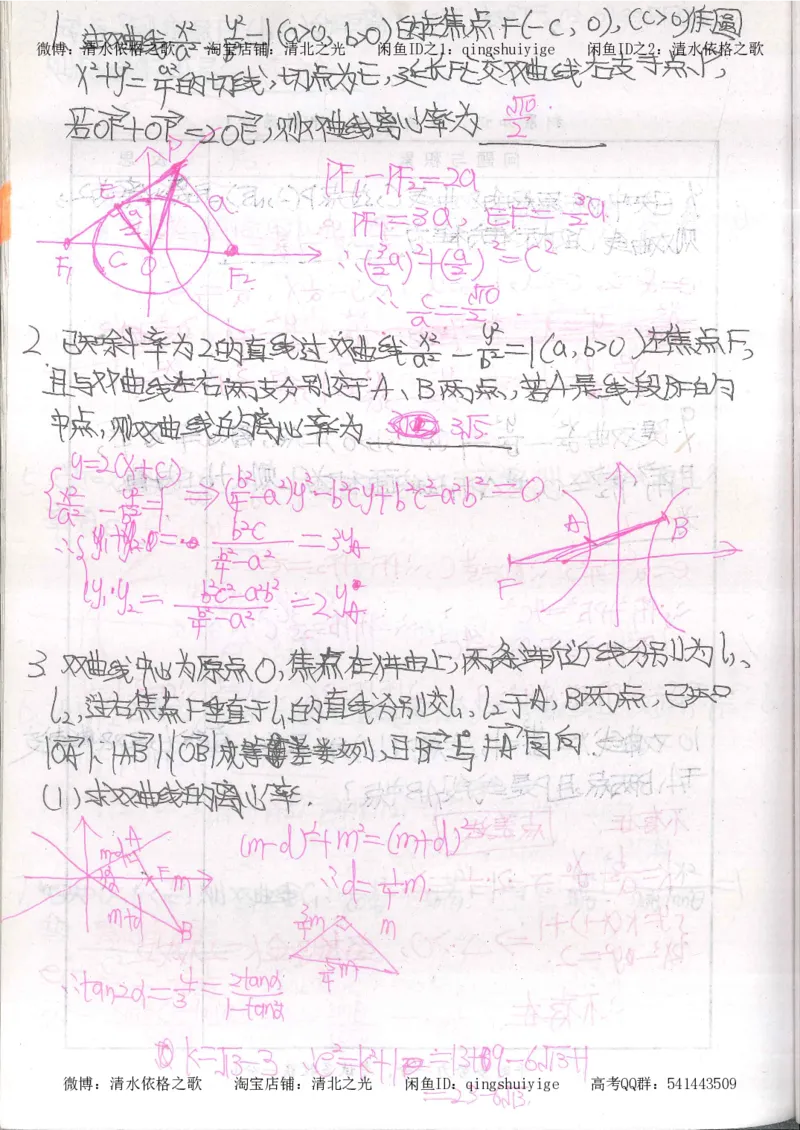 1. 过双曲线 x²/a² - y²/b² = 1 (a>0, b>0) 的左焦点 F(-c, 0), (c>0) 作圆
微博：清水依格之歌 淘宝店铺：清北之光 闲鱼ID之1：qingshuiyige 闲鱼ID之2：清水依格之歌
x²+y² = a²/4 的切线, 切点为E, 延长FE交双曲线右支于点P,
若OF+OP=2OE, 则双曲线离心率为 √10/2
PF₁-PF₂=2a
PF₁=3a, EF=3/2a
∴(3/2a)²+(a/2)²=c²
∴ c/a = √10/2
P
E
a
a/2
F₁
C
O
F₂
2. 已知斜率为2的直线过双曲线 x²/a² - y²/b² = 1 (a, b>0) 左焦点F,
且与双曲线左右两支分别交于A、B两点, 若A是线段BF的
中点, 则双曲线的离心率为 3√5
y=2(x+c)
x²/a² - y²/b² = 1 ⇒ (b²/4-a²)y²-b²cy+b²c²-a²b²=0
∴ y₁+y₂= b²c/(b²/4-a²) =3yA
y₁·y₂= (b²c²-a²b²)/(b²/4-a²) =2yA²
A
B
F
3. 双曲线中心为原点O, 焦点在x轴上, 两条渐近线分别为l₁、
l₂, 过右焦点F垂直于l₁的直线分别交l₁、l₂于A, B两点, 已知
|OA|、|AB|、|OB|成等差数列, 且BF与FA同向.
(1) 求双曲线的离心率.
(m-d)²+m²=(m+d)²
∴d=1/4m.
A
m-d
F
m
m+d
B
3/4m
m
5/4m
∴tan2α=4/3=2tanα/(1-tan²α)
k=√13-3 ∴e²=k²+1=13+9-6√13+1
=23-6√13.
微博：清水依格之歌 淘宝店铺：清北之光 闲鱼ID：qingshuiyige 高考QQ群：541443509